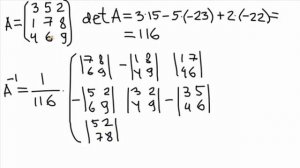 A = (3 5 2 detA = 3·15 - 5·(-23) + 2·(-22) =
1 7 8 = 116
4 6 9)
A⁻¹ = 1/116 · ( |7 8; 6 9| - |1 8; 4 9| |1 7; 4 6|
- |5 2; 6 9| |3 2; 4 9| - |3 5; 4 6|
|5 2; 7 8|